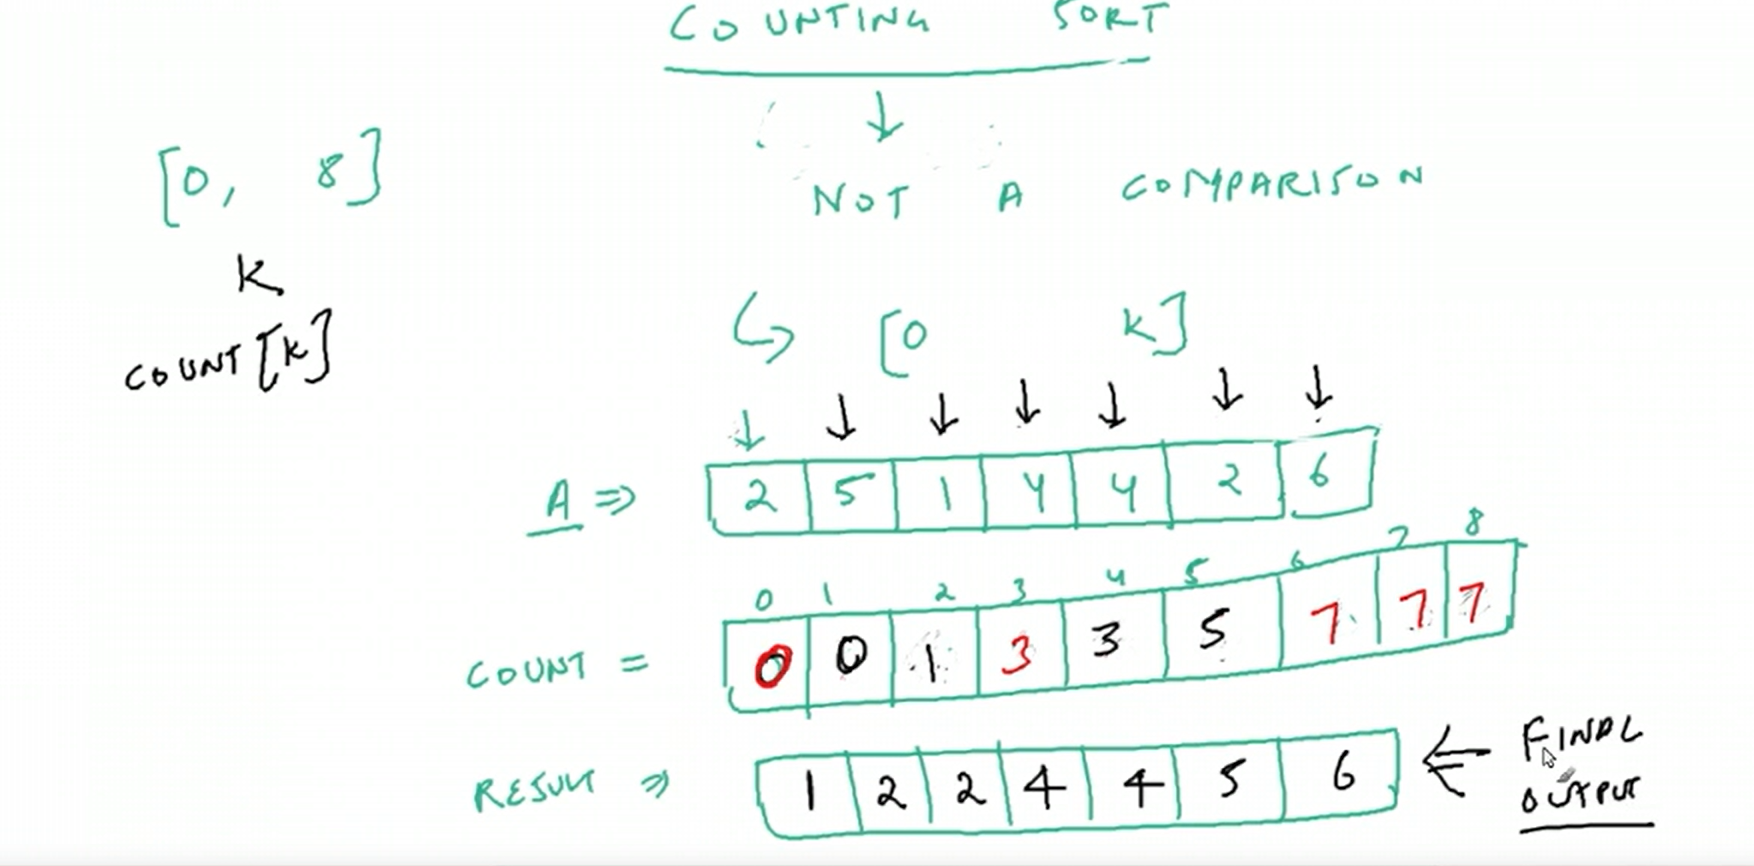 COUNTING SORT
↓
NOT A COMPARISON
[0, 8]
K
COUNT[K]
↳ [0 K]
↓ ↓ ↓ ↓ ↓ ↓ ↓
A ⇒ 2 5 1 4 4 2 6
0 1 2 3 4 5 6 7 8
COUNT = 0 0 1 3 3 5 7 7 7
RESULT ⇒ 1 2 2 4 4 5 6 ⇐ FINAL
OUTPUT